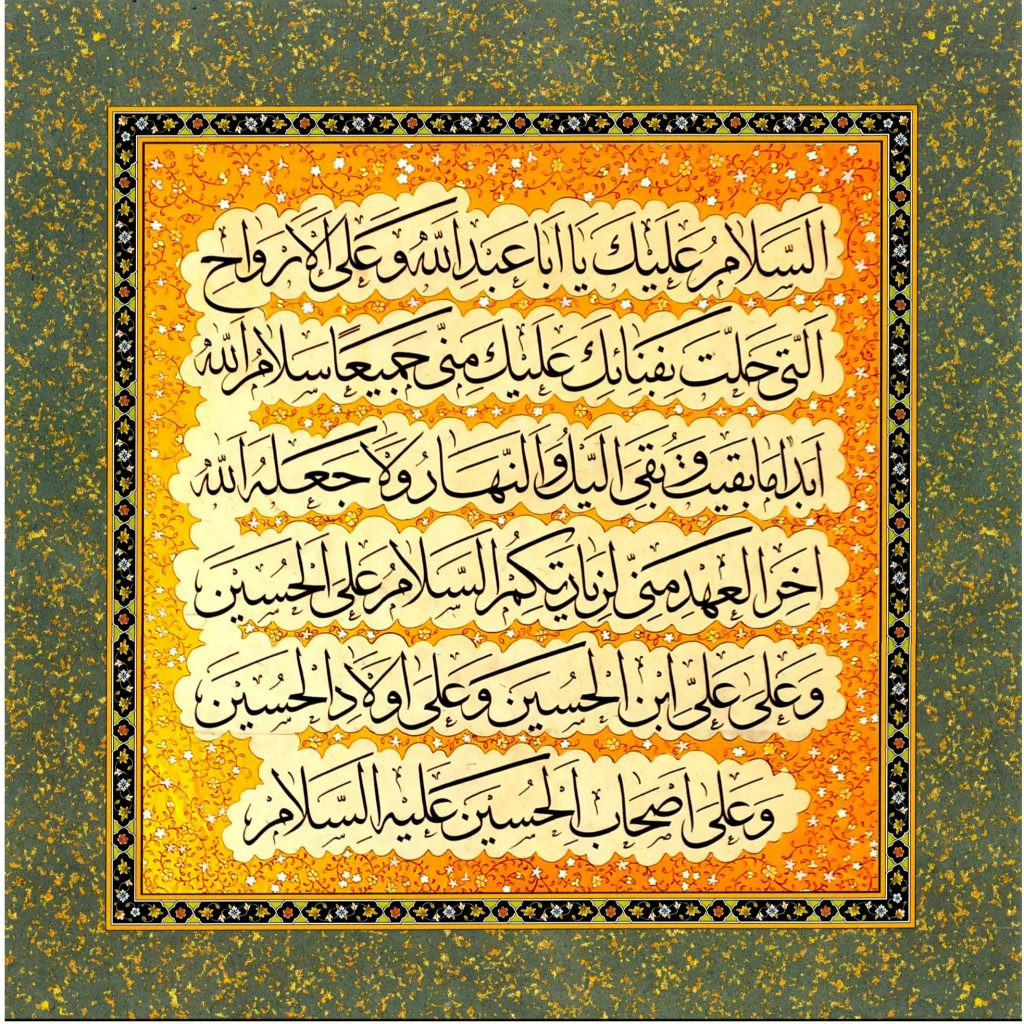 السَّلامُ عَلَيْكَ يا اَبا عَبْدِاللّٰهِ وَعَلَى الْاَرْواحِ
الَّتى حَلَّتْ بِفِنائِكَ عَلَيْكَ مِنّى جَميعًا سَلامُ اللّٰهِ
اَبَدًا ما بَقيتُ وَ بَقِىَ الَّيْلُ وَ النَّهارُ وَلا جَعَلَهُ اللّٰهُ
اخِرَ الْعَهْدِ مِنّى لِزِيارَتِكُمْ السَّلامُ عَلَى الْحُسَيْنِ
وَعَلى عَلىِّ ابْنِ الْحُسَيْنِ وَعَلى اَوْلادِ الْحُسَيْنِ
وَعَلى اَصْحابِ الْحُسَيْنِ عَلَيْهِ السَّلامُ